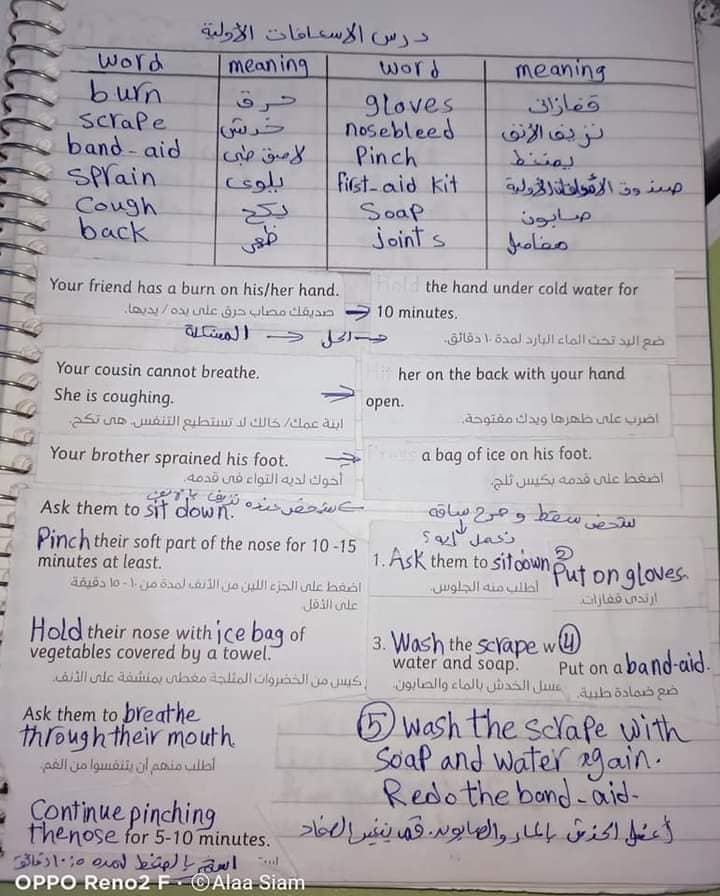 درس الاسعافات الأولية
word meaning word meaning
burn حرق gloves قفازات
scrape خدش nosebleed نزيف الأنف
band-aid لاصق طبى Pinch يضغط
sprain يلوى first-aid kit صندوق الأولية
cough يكح Soap صابون
back ظهر joints مفاصل
Your friend has a burn on his/her hand.
صديقك مصاب حرق على يده / يديها.
Hold the hand under cold water for
10 minutes.
ضع اليد تحت الماء البارد لمدة ١٠ دقائق.
المشكلة الحل
Your cousin cannot breathe.
She is coughing.
ابنة عمك/ خالك لا تستطيع التنفس. هى تكح.
Hit her on the back with your hand
open.
اضرب على ظهرها ويدك مفتوحة.
Your brother sprained his foot.
أخوك لديه التواء فى قدمه.
Press a bag of ice on his foot.
اضغط على قدمه بكيس ثلج.
شخص عنده نزيف
Ask them to sit down.
Pinch their soft part of the nose for 10 -15
minutes at least.
اضغط على الجزء اللين من الأنف لمدة من ١٠ - ١٥ دقيقة
على الأقل
Hold their nose with ice bag of
vegetables covered by a towel.
كيس من الخضروات المثلجة مغطى بمنشفة على الأنف.
Ask them to breathe
through their mouth
أطلب منهم أن يتنفسوا من الفم.
Continue pinching
the nose for 5-10 minutes.
استمر بالضغط لمده
شخص سقط و جرح ساقه
تعمل إيه؟
1. Ask them to sit down
أطلب منه الجلوس.
② Put on gloves.
ارتدى قفازات.
3. Wash the scrape w
water and soap.
غسل الخدش بالماء والصابون.
④
Put on a band-aid.
ضع ضمادة طبية.
⑤ wash the scrape with
soap and water again.
Redo the band-aid.
OPPO Reno2 F · ©Alaa Siam